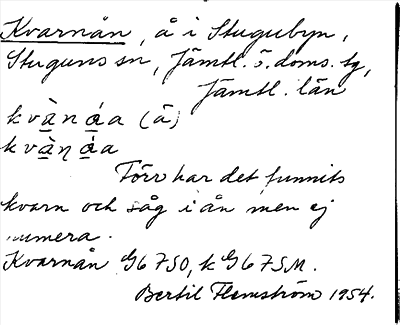 Kvarnån, å i Stugubyn,
Stuguns sn, Jämtl. ö. doms. tg,
Jämtl. län
kvànáa (ā)
kvàṇáa
Förr har det funnits
kvarn och såg i ån men ej
numera.
Kvarnån G6750, k G675M.
Bertil Flemström 1954.